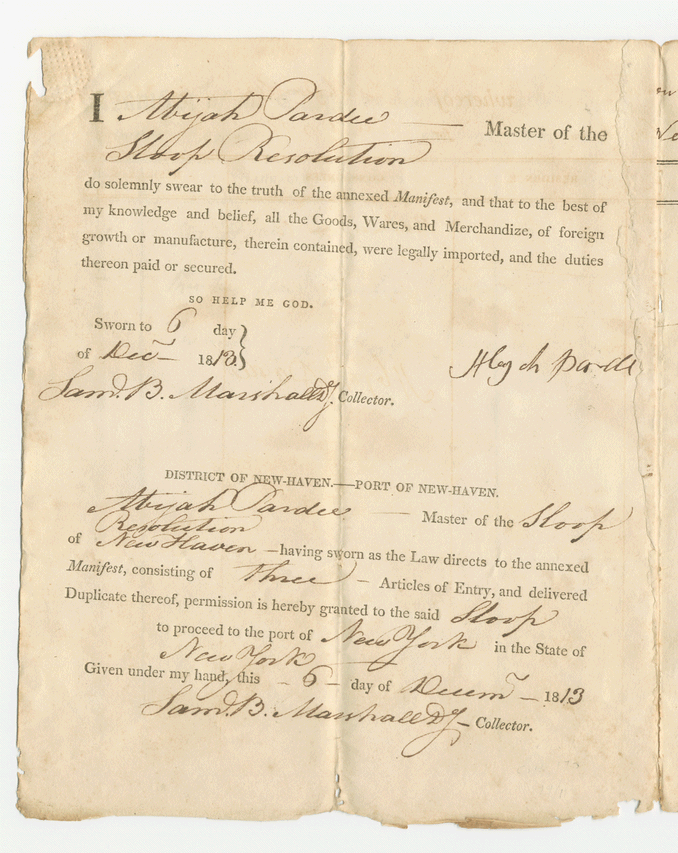 I Abijah Pardee — Master of the
Sloop Resolution
do solemnly swear to the truth of the annexed Manifest, and that to the best of
my knowledge and belief, all the Goods, Wares, and Merchandize, of foreign
growth or manufacture, therein contained, were legally imported, and the duties
thereon paid or secured.
SO HELP ME GOD.
Sworn to 6 day
of Decr 1813.
Abijah Pardee
Saml. B. Marshall Dy. Collector.
DISTRICT OF NEW-HAVEN.—PORT OF NEW-HAVEN.
Abijah Pardee — Master of the Sloop
Resolution
of New Haven — having sworn as the Law directs to the annexed
Manifest, consisting of Three — Articles of Entry, and delivered
Duplicate thereof, permission is hereby granted to the said Sloop
to proceed to the port of New York in the State of
New York —
Given under my hand, this — 6 — day of Decemr — 1813
Saml. B. Marshall Dy — Collector.